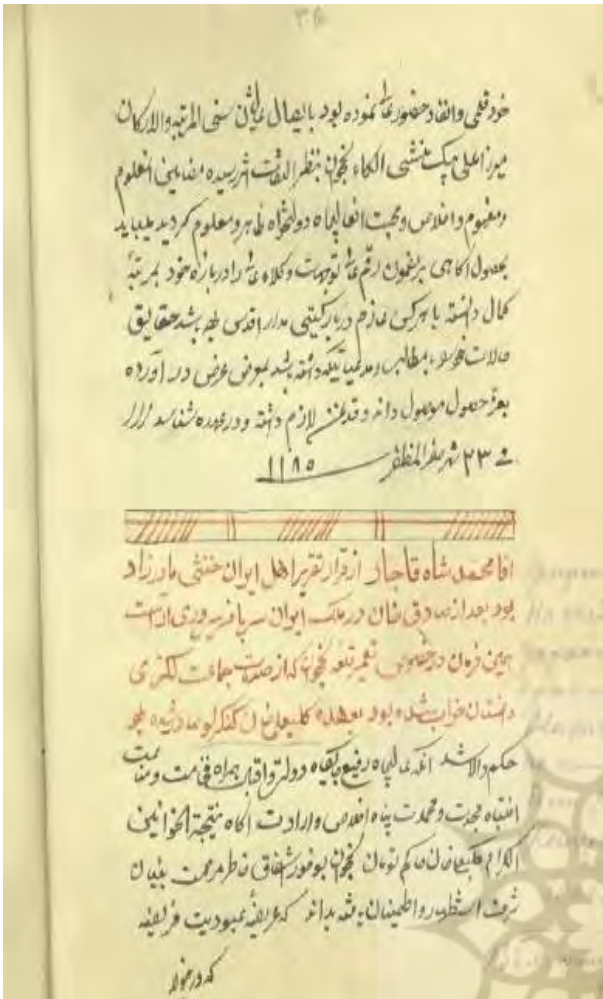 خود قلمی و انفاد حضور عالی نموده بود بایصال عالیشان سنی المرتبه والارکان
میرزا علی بیک منشی الکاء نخجوان بنظر التفات اثر رسیده مضامین آن معلوم
و مفهوم و اخلاص و محبت انعالیجاه دولتخواه ظاهر و معلوم گردید میباید
بحصول آگاهی بر مضمون رقم عالی توجهات وکلاء عالی را درباره خود بمرتبهٔ
کمال دانسته با هر کس عازم دربار گیتی مدار اقدس بوده باشد حقایق
حالات خود را با مطالب و مدعیاتیکه داشته باشد بمعرض عرض در آورده
بعز حصول موصول داند و قدغن لازم دانسته و در عهده شناسد
فی ۲۳ شهر صفر المظفر ۱۱۸۵
اقا محمد شاه قاجار از قرار تقریر اهل ایران خنثی مادرزاد
بود بعد از صادق خان در ملک ایران سر بافسر سروری اراست
همین فرمان در خصوص تعمیر قلعه نخجوان که از صدمات جماعت لکزی
داغستان خراب شده بود بعهده کلبعلی خان کنکرلو صادر شده بود
حکم والا شد انکه عالیجاه رفیع جایگاه دولت و اقبال همراه فخامت و مناعت
انتباه نجدت و محمدت پناه اخلاص و ارادت اگاه نتیجة الخوانین
الکرام کلبعلی خان حاکم تومان نخجوان بوفور اشفاق خاطر مرحمت بنیان
شرف استظهار و اطمینان یافته بداند که عریضهٔ عبودیت فریضه
که در خوله